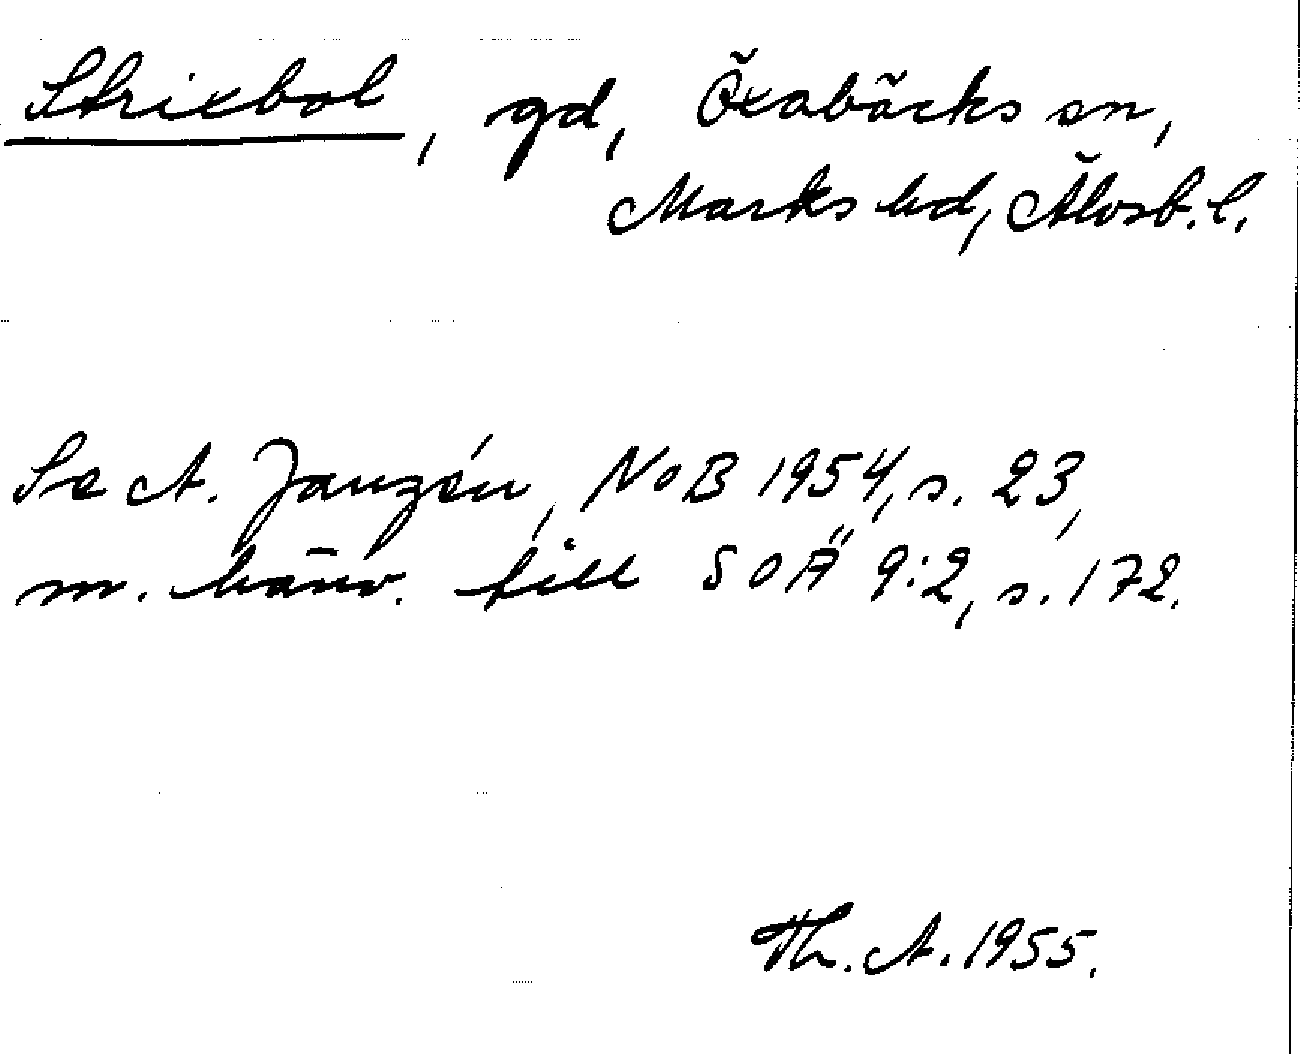 Strixbol, gd, Öxabäcks sn,
Marks hd, Älvsb. l.
Se A. Janzén, NoB 1954, s. 23,
m. hänv. till SOÄ 9:2, s. 172.
Th. A. 1955.